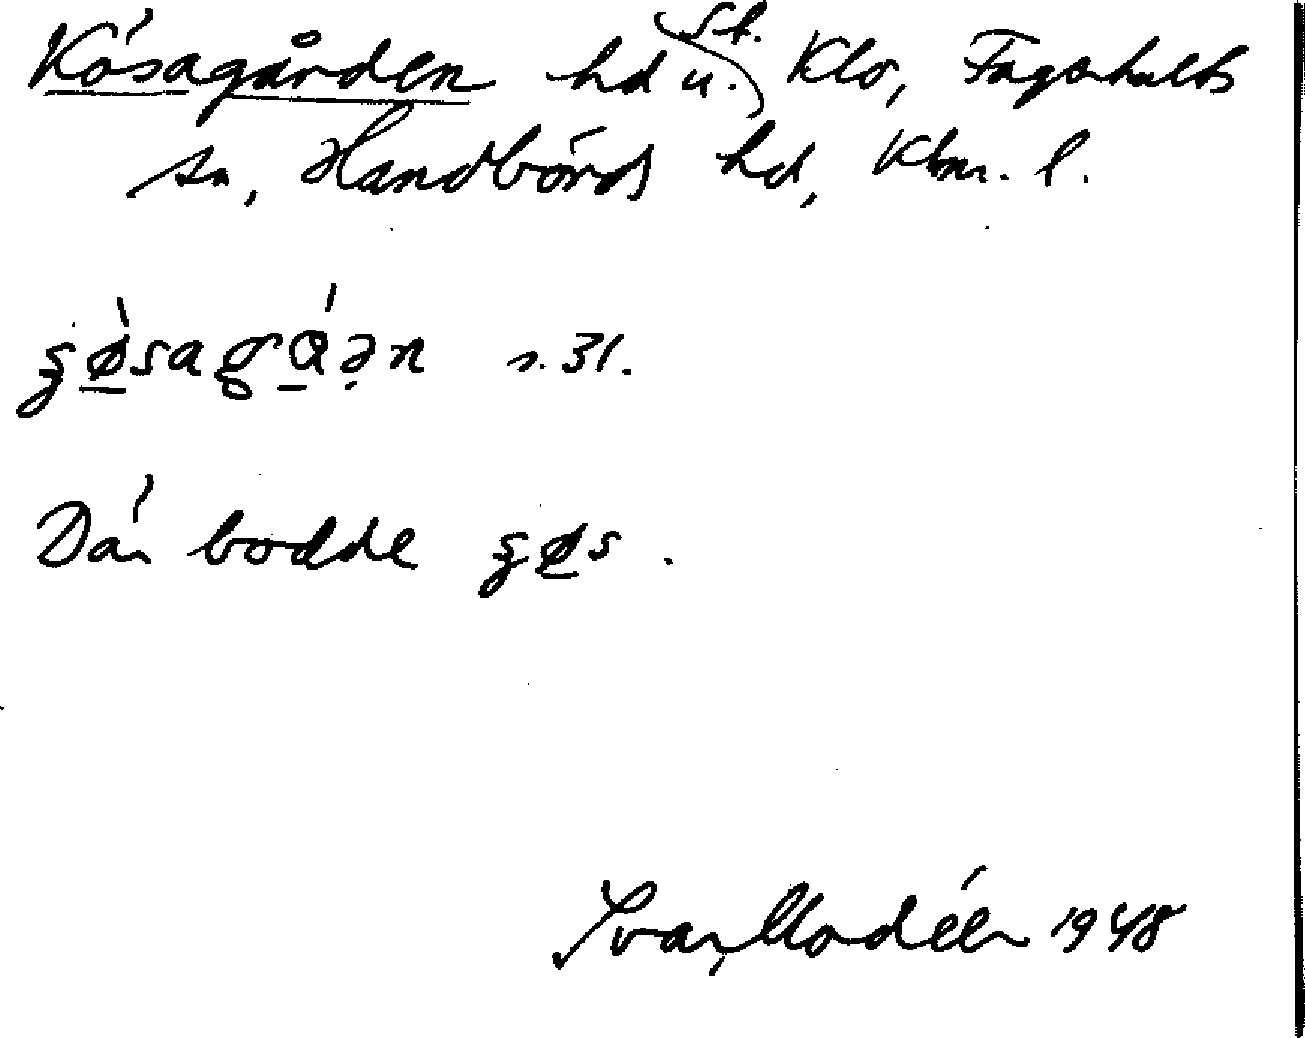 Kösagården hd u. St. Klo, Fagerhults
sn, Handbörds hd, Klm. l.
s. 31.
Där bodde
Ivar Modéer 1948